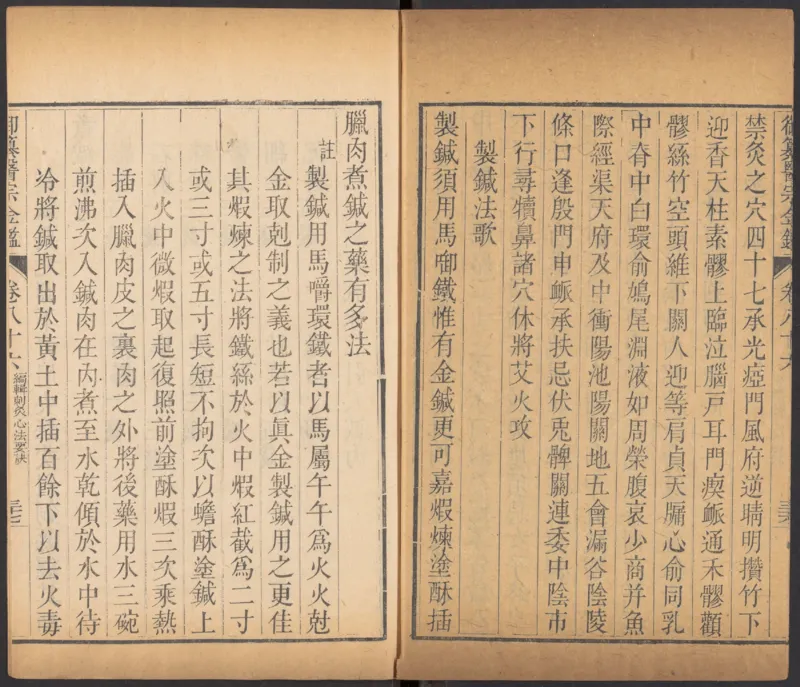 禁灸之穴四十七承光瘂門風府逆睛明攢竹下
迎香天柱素髎上臨泣腦戸耳門瘈脈通禾髎顴
髎絲竹空頭維下關人迎等肩貞天牖心俞同乳
中脊中白環俞鳩尾淵液如周榮腹哀少商并魚
際經渠天府及中衝陽池陽關地五會漏谷陰陵
條口逢殷門申脈承扶忌伏兎髀關連委中陰市
下行尋犢鼻諸穴休將艾火攻
製鍼法歌
製鍼須用馬啣鐵惟有金鍼更可嘉煅煉塗酥插
臘肉煮鍼之藥有多法
註製鍼用馬嚼環鐵者以馬屬午午爲火火尅
金取剋制之義也若以眞金製鍼用之更佳
其煅煉之法將鐵絲於火中煅紅截爲二寸
或三寸或五寸長短不拘次以蟾酥塗鍼上
入火中微煅取起復照前塗酥煅三次乘熱
插入臘肉皮之裏肉之外將後藥用水三碗
煎沸次入鍼肉在內煮至水乾傾於水中待
冷將鍼取出於黃土中插百餘下以去火毒
御纂醫宗金鑑 卷八十六 編輯刺灸心法要訣